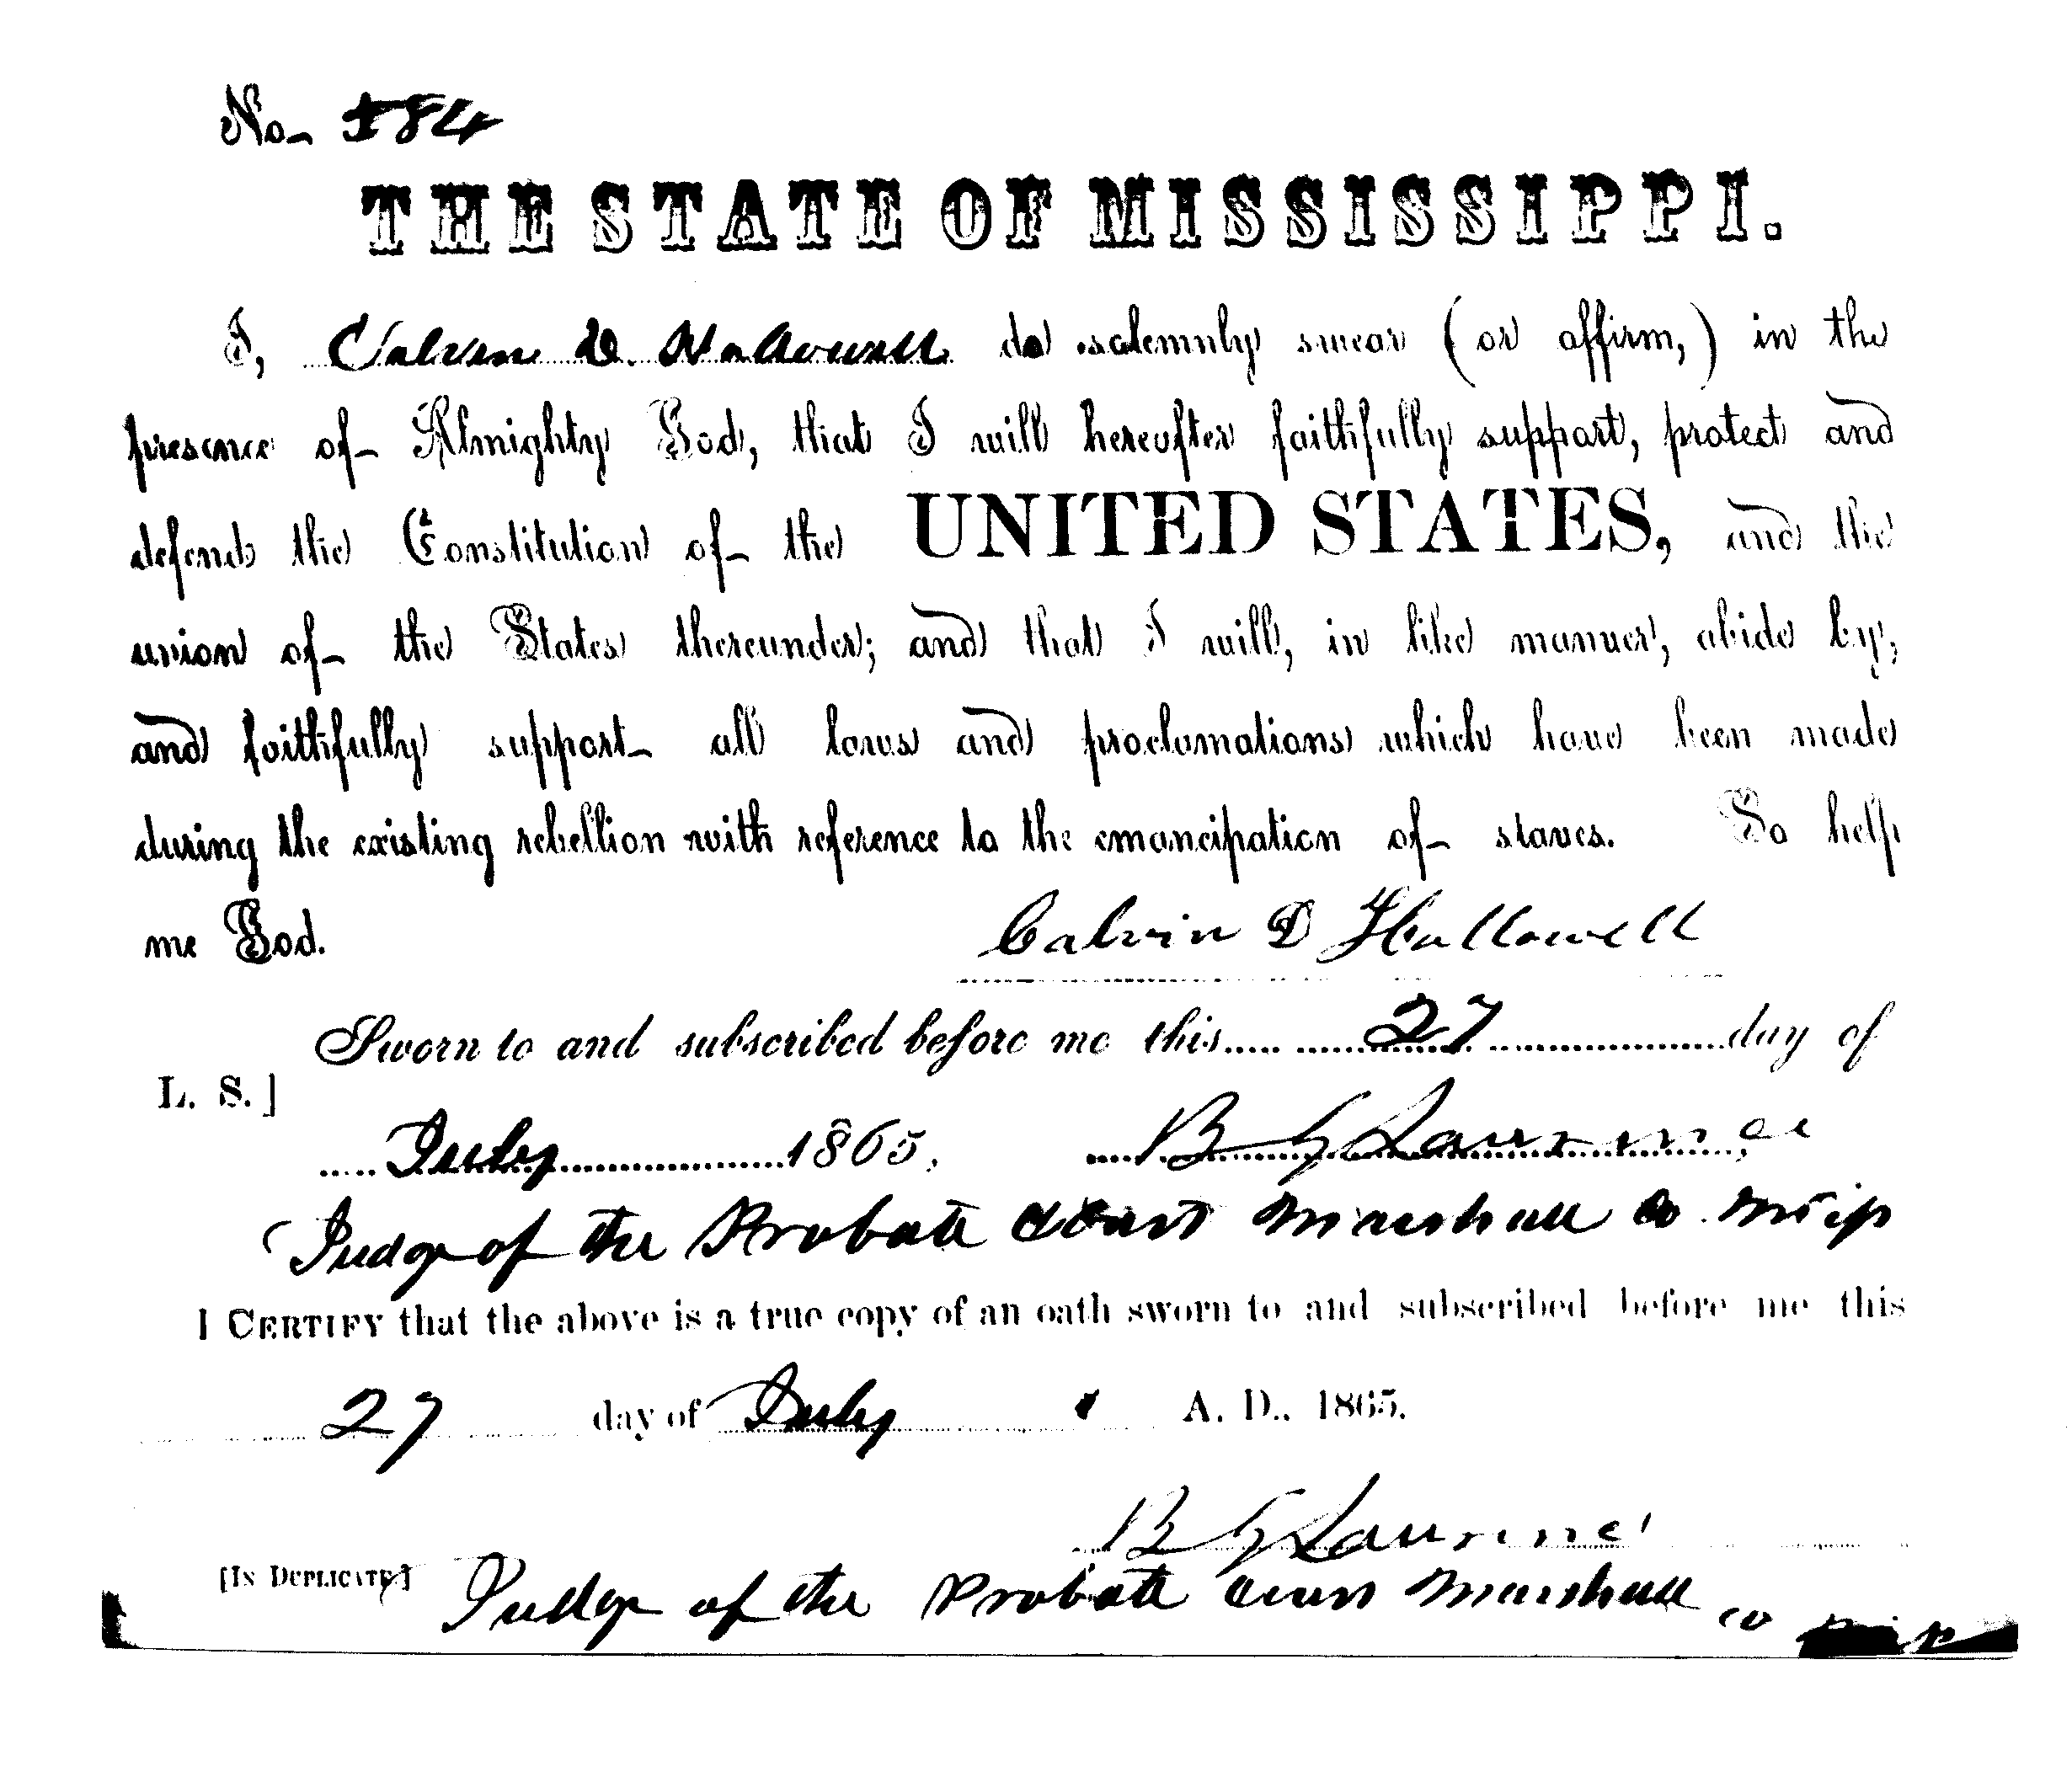 No. 184
THE STATE OF MISSISSIPPI.
I, Calvin D. Hallowell do solemnly swear (or affirm,) in the
presence of Almighty God, that I will hereafter faithfully support, protect and
defend the Constitution of the UNITED STATES, and the
union of the States thereunder; and that I will, in like manner, abide by,
and faithfully support all laws and proclamations which have been made
during the existing rebellion with reference to the emancipation of slaves. So help
me God.
Calvin D Hallowell
Sworn to and subscribed before me this 27 day of
L. S.]
July 1865, B G Lawrence
Judge of the Probate Court Marshall Co. Missip
I CERTIFY that the above is a true copy of an oath sworn to and subscribed before me this
27 day of July A. D., 1865.
B G Lawrence
[IN DUPLICATE] Judge of the Probate Court Marshall co